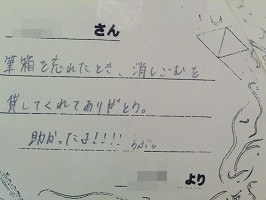 さん
筆箱を忘れたとき、消しごむを
貸してくれてありがとう。
助かったよ!!!!
より